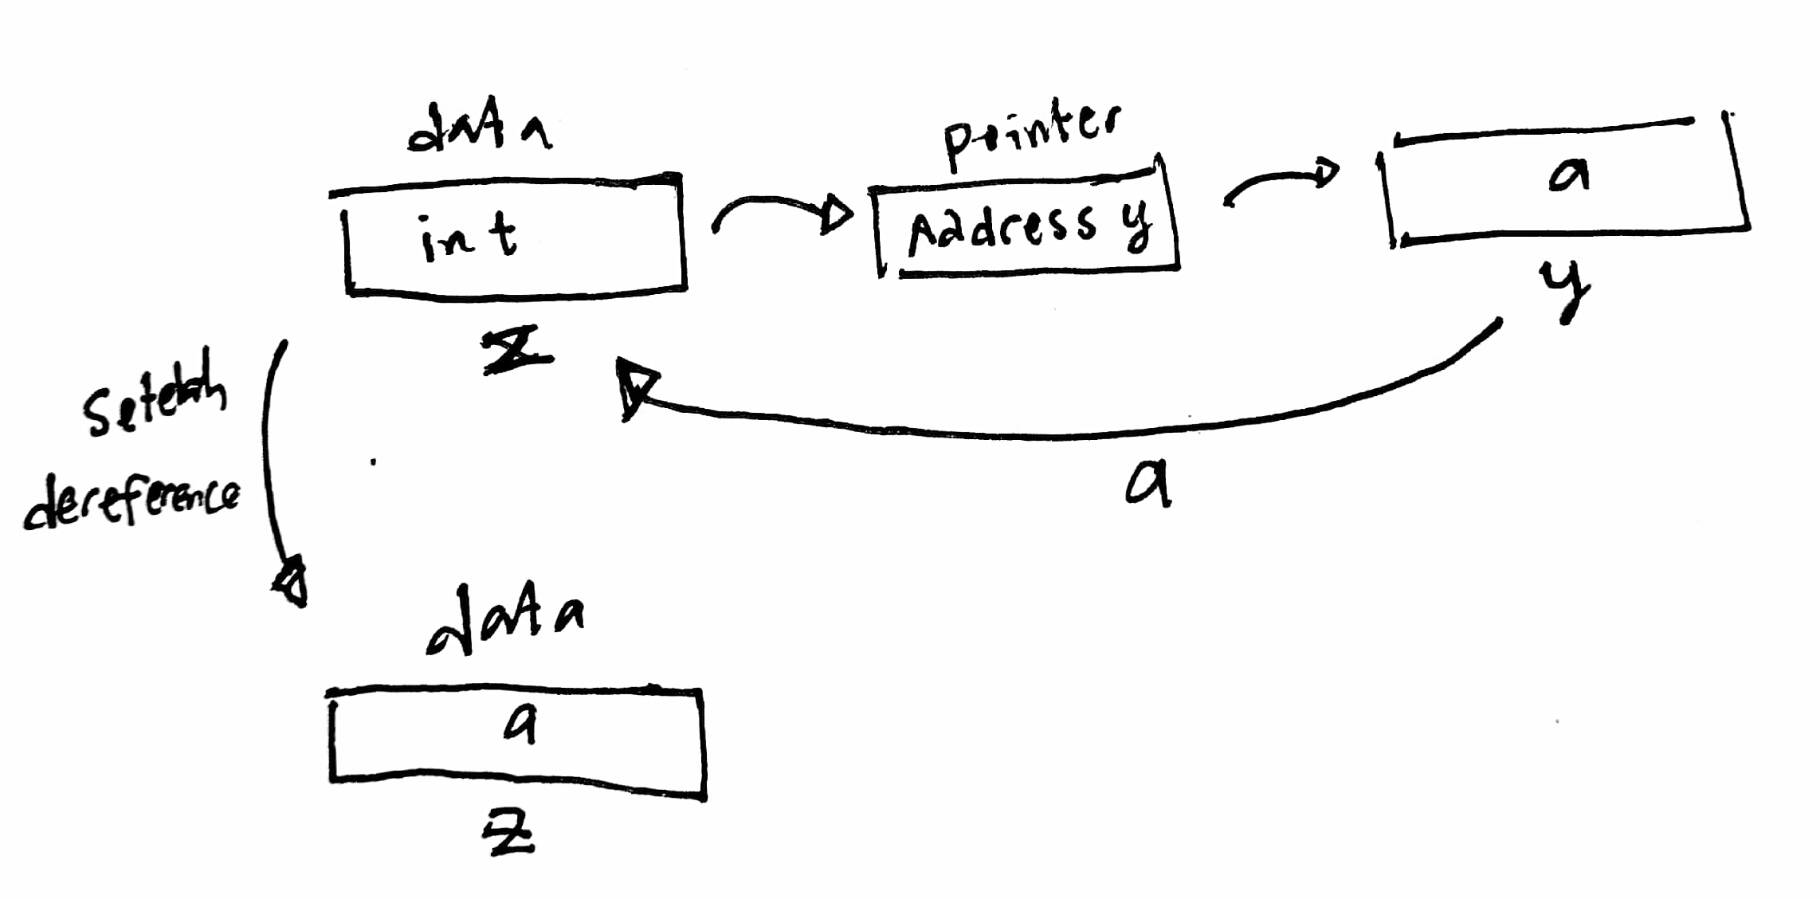 data
pointer
int
Address y
a
z
y
Setelah
dereference
a
data
a
z